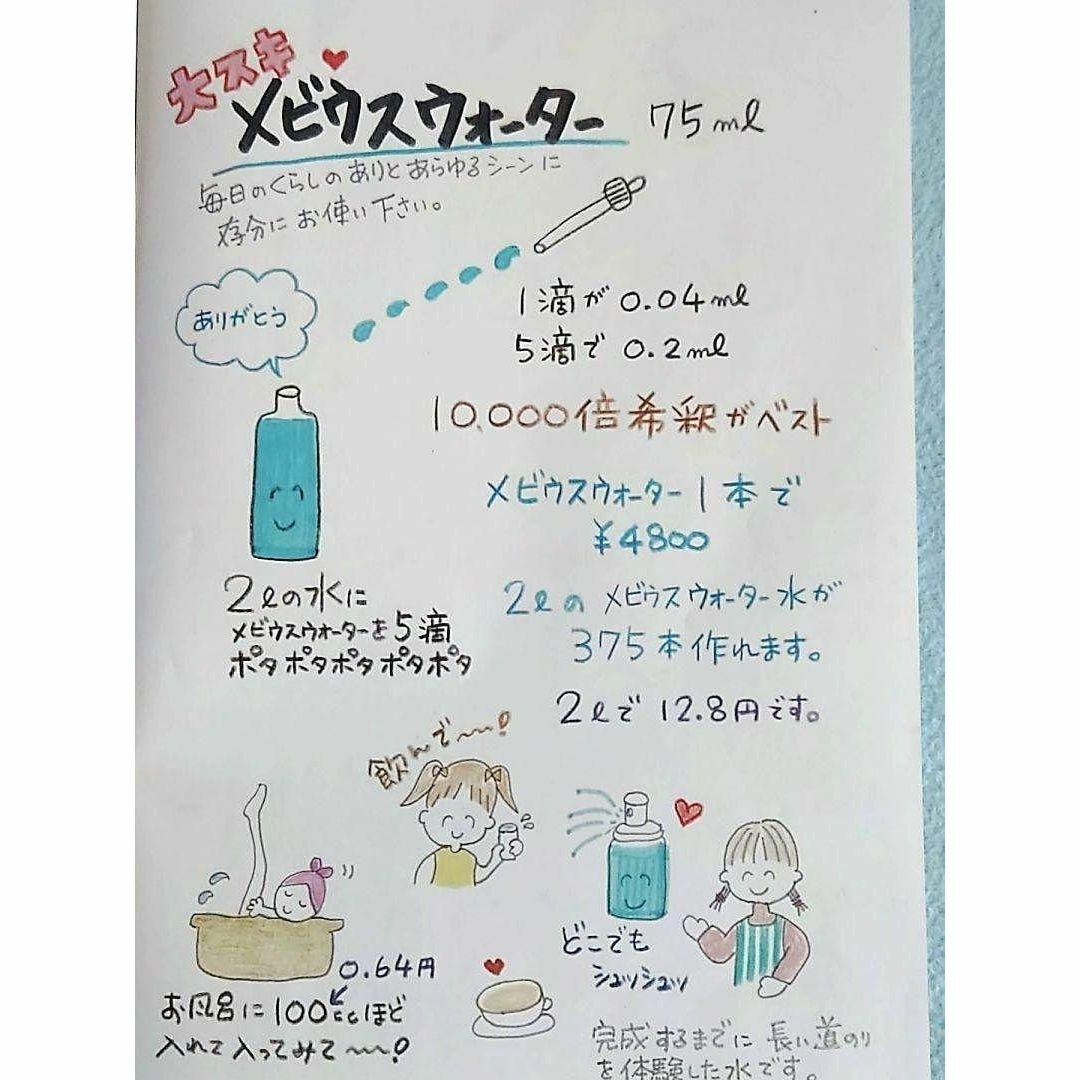 大スキ
メビウスウォーター 75ml
毎日のくらしのありとあらゆるシーンに
存分にお使い下さい。
ありがとう
1滴が 0.04ml
5滴で 0.2ml
10,000倍希釈がベスト
メビウスウォーター1本で
¥4800
2lの水に
メビウスウォーターを5滴
ポタポタポタポタポタ
2lのメビウスウォーター水が
375本作れます。
2lで 12.8円です。
飲んで〜!
どこでも
シュッシュッ
0.64円
お風呂に100ccほど
入れて入ってみて〜!
完成するまでに長い道のり
を体験した水です。